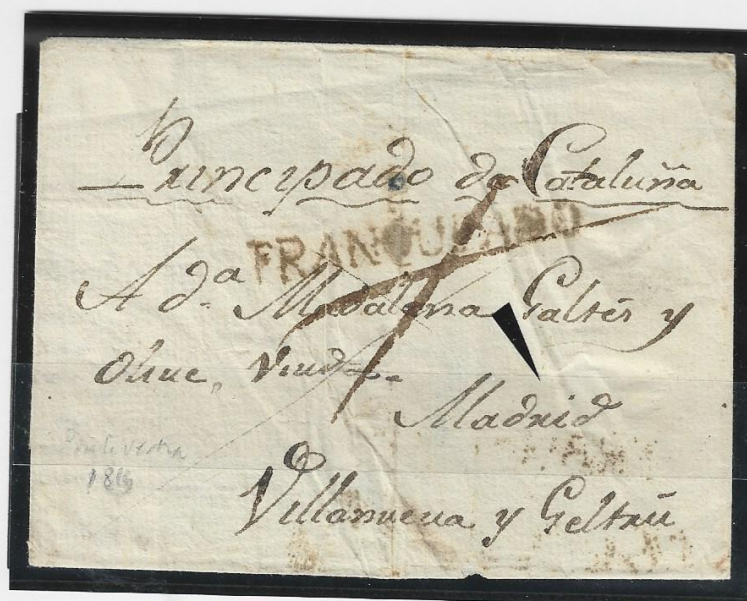 Principado de Cataluña
FRANQUEADO
A d.ª Madalena Galtés y
Olive, Viuda
Madrid
Villanueva y Geltrú
Pontevedra
18